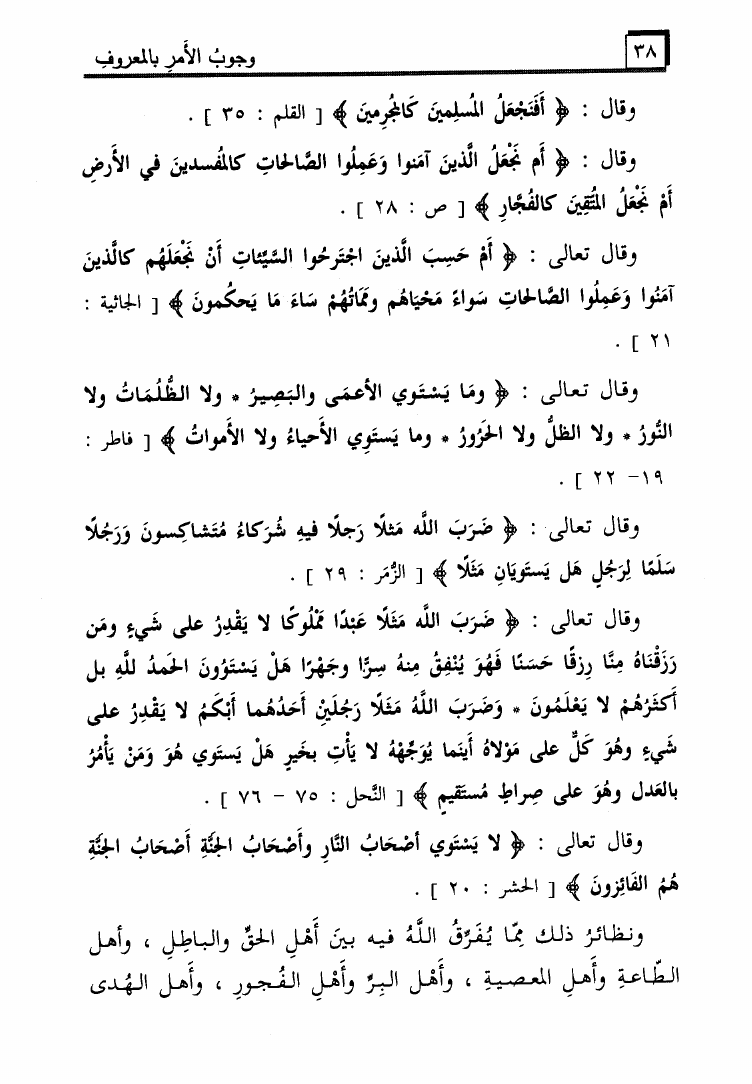 ٣٨
وجوبُ الأَمرِ بالمعروفِ
وقال : ﴿ أَفَنَجْعَلُ المُسلِمينَ كَالمُجرِمينَ ﴾ [ القلم : ٣٥ ] .
وقال : ﴿ أَم نَجْعَلُ الَّذينَ آمَنوا وَعَمِلُوا الصَّالحَاتِ كالمُفسدينَ في الأَرضِ
أَمْ نَجْعَلُ المُتَّقِينَ كالفُجَّارِ ﴾ [ ص : ٢٨ ] .
وقال تعالى : ﴿ أَمْ حَسِبَ الَّذينَ اجْتَرحُوا السَّيِّئاتِ أَنْ نَجْعَلَهُم كالَّذينَ
آمَنُوا وَعَمِلُوا الصَّالحَاتِ سَواءً مَحْيَاهُم ومَمَاتُهُمْ سَاءَ مَا يَحكُمونَ ﴾ [ الجاثية :
٢١ ] .
وقال تعالى : ﴿ ومَا يَسْتَوي الأعمَى والبَصِيرُ * ولا الظُّلُمَاتُ ولا
النُّورُ * ولا الظلُّ ولا الحَرُورُ * وما يَستَوِي الأَحياءُ ولا الأَمواتُ ﴾ [ فاطر :
١٩- ٢٢ ] .
وقال تعالى : ﴿ ضَرَبَ اللَّه مَثلًا رَجلًا فيهِ شُرَكاءُ مُتَشاكِسونَ وَرَجُلًا
سَلَمًا لِرَجُلٍ هَل يَستَويَانِ مَثَلًا ﴾ [ الزُّمَر : ٢٩ ] .
وقال تعالى : ﴿ ضَرَبَ اللَّه مَثَلًا عَبْدًا مَمْلُوكًا لا يَقْدِرُ على شَيءٍ ومَن
رَزَقْنَاهُ مِنَّا رِزقًا حَسَنًا فَهُوَ يُنْفِقُ مِنهُ سِرًّا وجَهْرًا هَلْ يَسْتَوُونَ الحَمدُ للَّهِ بل
أَكثَرُهُمْ لا يَعْلَمُونَ * وَضَرَبَ اللَّهُ مَثَلًا رَجُلَيْنِ أَحَدُهُما أَبْكَمُ لا يَقْدِرُ على
شَيءٍ وهُوَ كَلٌّ على مَوْلاهُ أَينَما يُوَجِّهْهُ لا يَأْتِ بخَيرٍ هَلْ يَستَوي هُوَ وَمَنْ يَأْمُرُ
بالعَدلِ وهُوَ على صِراطٍ مُستَقيمٍ ﴾ [ النَّحل : ٧٥ – ٧٦ ] .
وقال تعالى : ﴿ لا يَسْتَوي أصْحَابُ النَّارِ وأَصْحَابُ الجَنَّةِ أَصْحَابُ الجَنَّةِ
هُمُ الفَائِزونَ ﴾ [ الحشر : ٢٠ ] .
ونظائرُ ذلك مِمّا يُفَرِّقُ اللَّهُ فيه بينَ أَهْلِ الحقِّ والباطِلِ ، وأهل
الطّاعةِ وأَهلِ المعصيةِ ، وأَهْل البِرِّ وأَهْلِ الفُجورِ ، وأَهل الهُدى